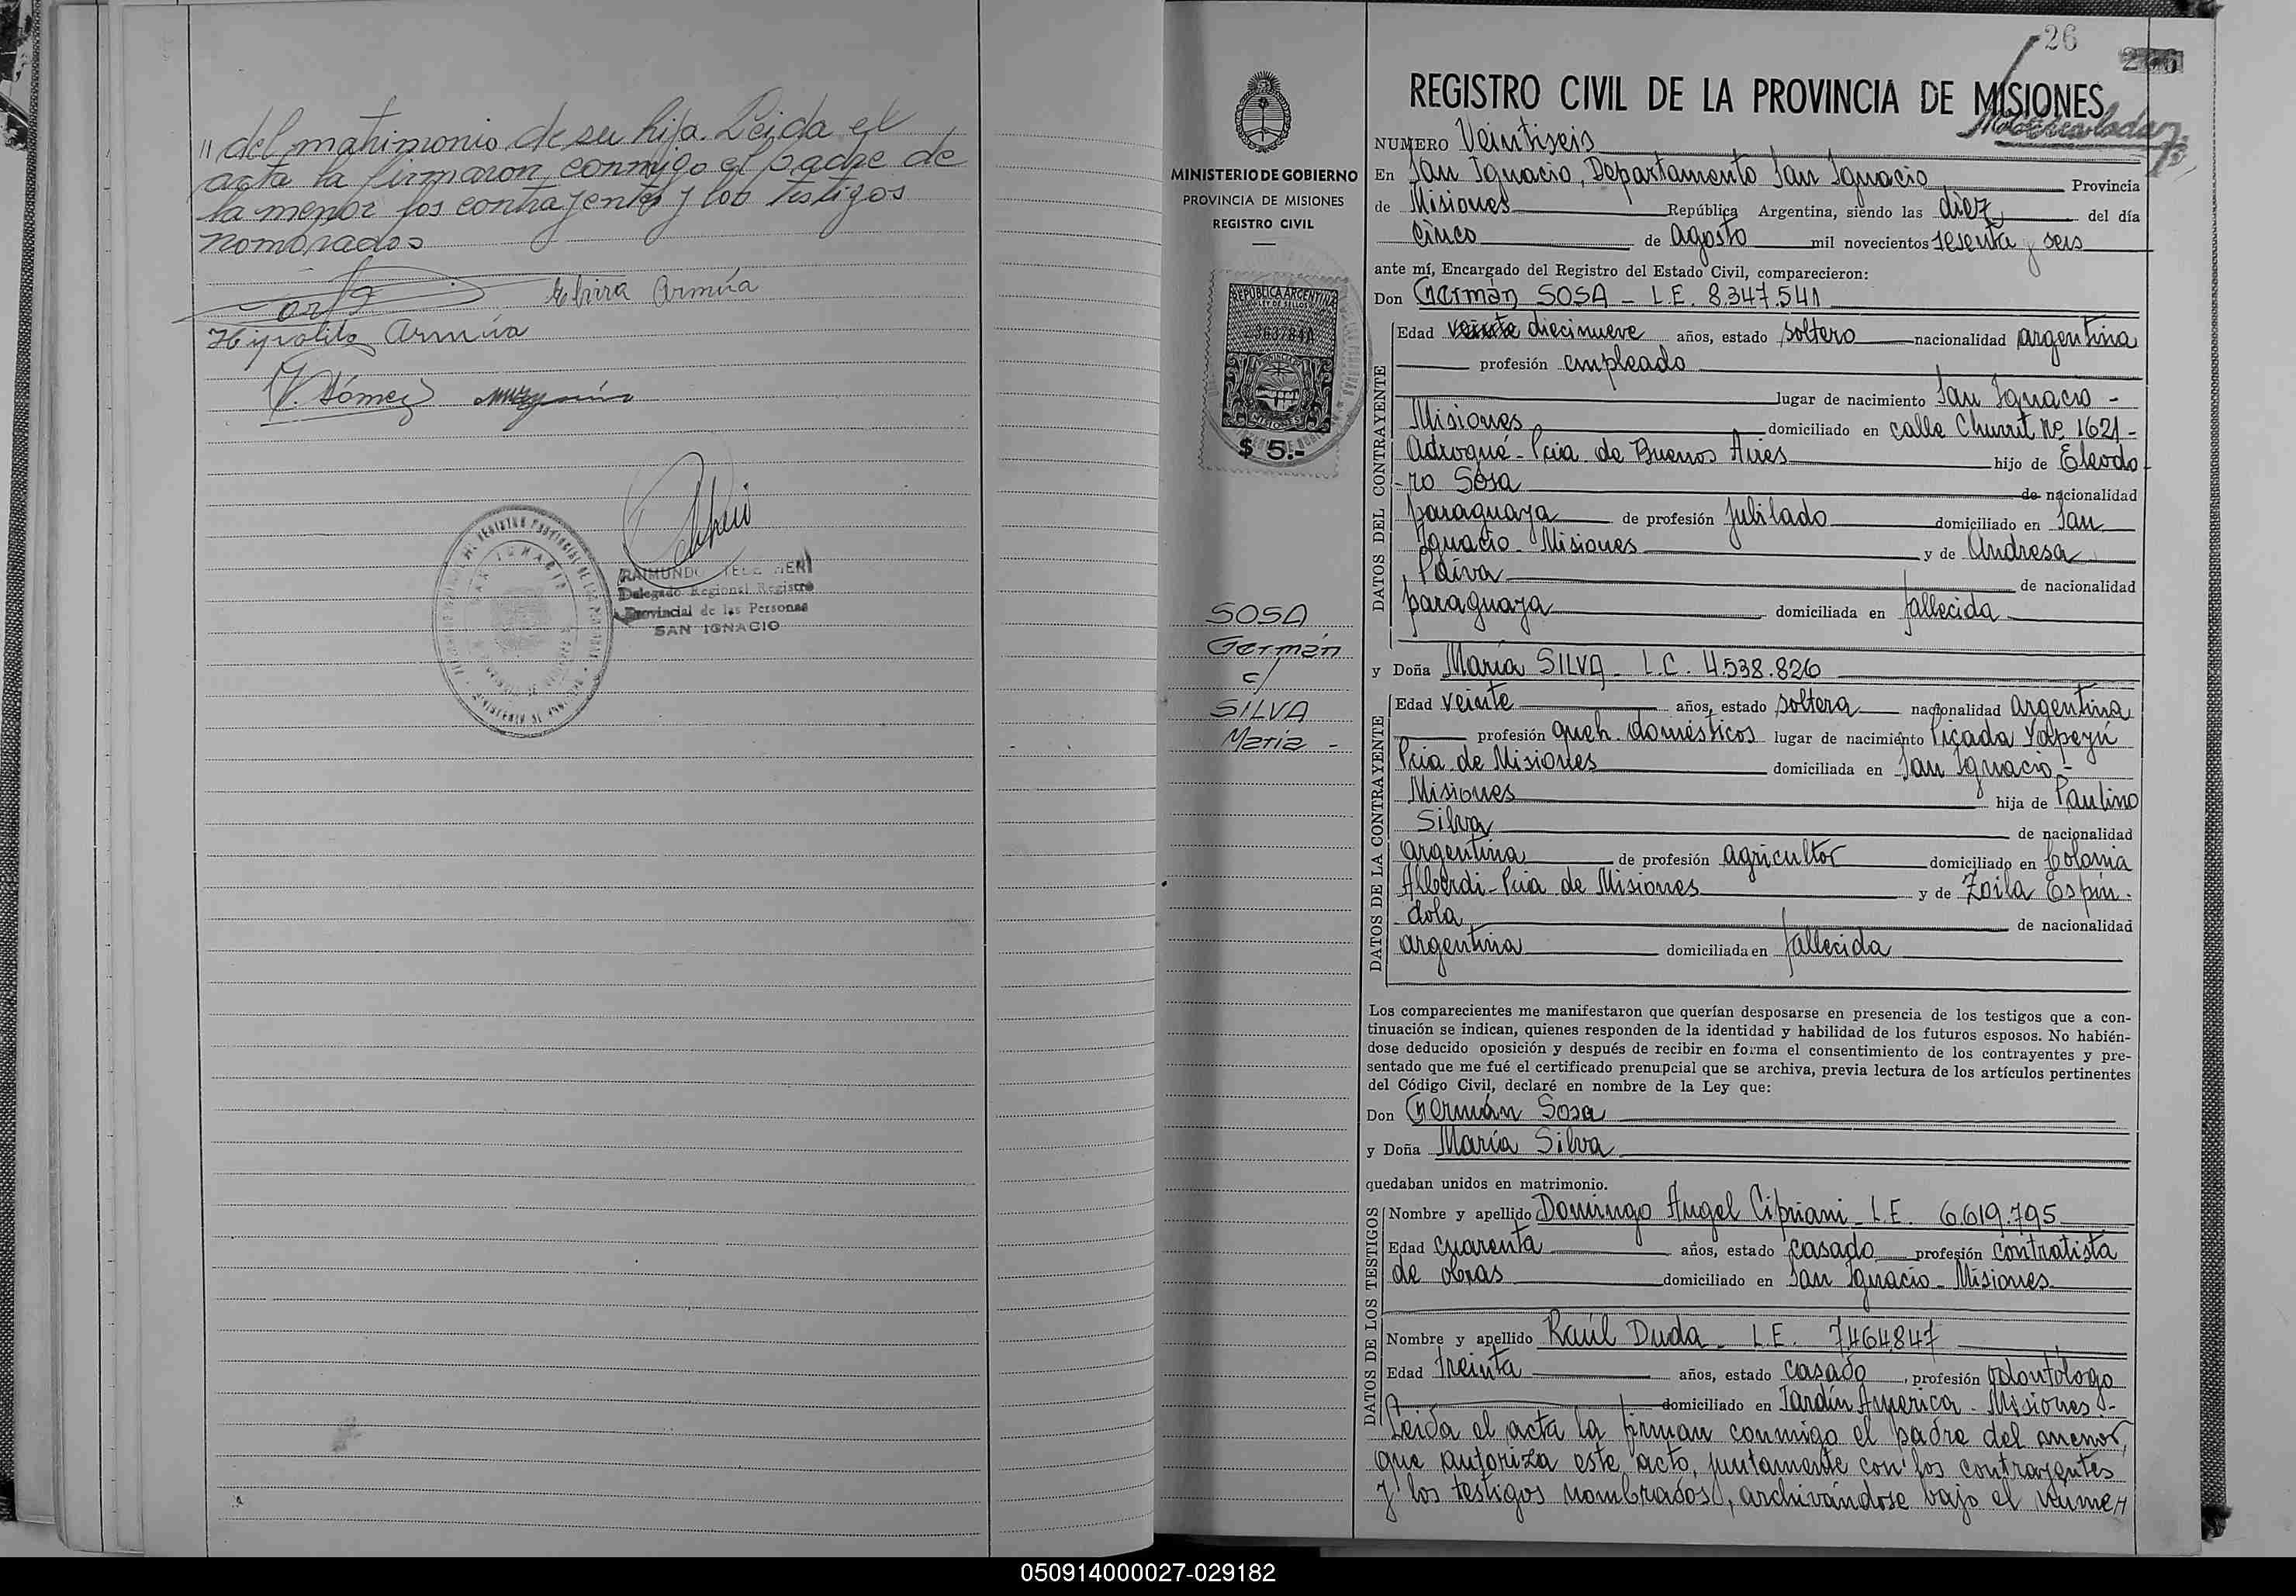 " del matrimonio de su hija. Leida el
acta la firmaron conmigo el padre de
la menor los contrayentes y los testigos
nombrados
Elvira Armúa
Hipolito Armúa
V. Gómez
RAIMUNDO NERI
Delegado Regional Registro
Provincial de las Personas
SAN IGNACIO
26
REGISTRO CIVIL DE LA PROVINCIA DE MISIONES
MINISTERIO DE GOBIERNO
PROVINCIA DE MISIONES
REGISTRO CIVIL
REPUBLICA ARGENTINA
LEY DE SELLOS
MISIONES
$ 5.-
SOSA
Germán
c/
SILVA
María -
NUMERO Veintiseis
En San Ignacio, Departamento San Ignacio Provincia
de Misiones República Argentina, siendo las diez del día
cinco de Agosto mil novecientos sesenta y seis
ante mí, Encargado del Registro del Estado Civil, comparecieron:
Don Germán SOSA - L.E. 8.347.541
DATOS DEL CONTRAYENTE
Edad veinte diecinueve años, estado soltero nacionalidad argentina
profesión empleado
lugar de nacimiento San Ignacio -
Misiones domiciliado en calle Nº 1621 -
Adrogué - Pcia de Buenos Aires hijo de Eleodo
-ro Sosa de nacionalidad
paraguaya de profesión jubilado domiciliado en San
Ignacio - Misiones y de Andresa
Paiva de nacionalidad
paraguaya domiciliada en fallecida
y Doña María SILVA - L.C. 4.538.826
DATOS DE LA CONTRAYENTE
Edad veinte años, estado soltera nacionalidad argentina
profesión queh. domésticos lugar de nacimiento Picada Yapeyú
Pcia de Misiones domiciliada en San Ignacio -
Misiones hija de Paulino
Silva de nacionalidad
argentina de profesión agricultor domiciliado en Colonia
Alberdi - Pcia de Misiones y de Zoila Espín-
dola de nacionalidad
argentina domiciliada en fallecida
Los comparecientes me manifestaron que querían desposarse en presencia de los testigos que a con-
tinuación se indican, quienes responden de la identidad y habilidad de los futuros esposos. No habién-
dose deducido oposición y después de recibir en forma el consentimiento de los contrayentes y pre-
sentado que me fué el certificado prenupcial que se archiva, previa lectura de los artículos pertinentes
del Código Civil, declaré en nombre de la Ley que:
Don Germán Sosa
y Doña María Silva
quedaban unidos en matrimonio.
DATOS DE LOS TESTIGOS
Nombre y apellido Domingo Angel Cipriani - L.E. 6.619.795
Edad cuarenta años, estado casado profesión contratista
de obras domiciliado en San Ignacio - Misiones
Nombre y apellido Raúl Duda - L.E. 7.464.847
Edad treinta años, estado casado, profesión odontólogo
domiciliado en Jardín America - Misiones -
Leida el acta la firman conmigo el padre del menor,
que autoriza este acto, juntamente con los contrayentes
y los testigos nombrados, archivándose bajo el núme
050914000027-029182